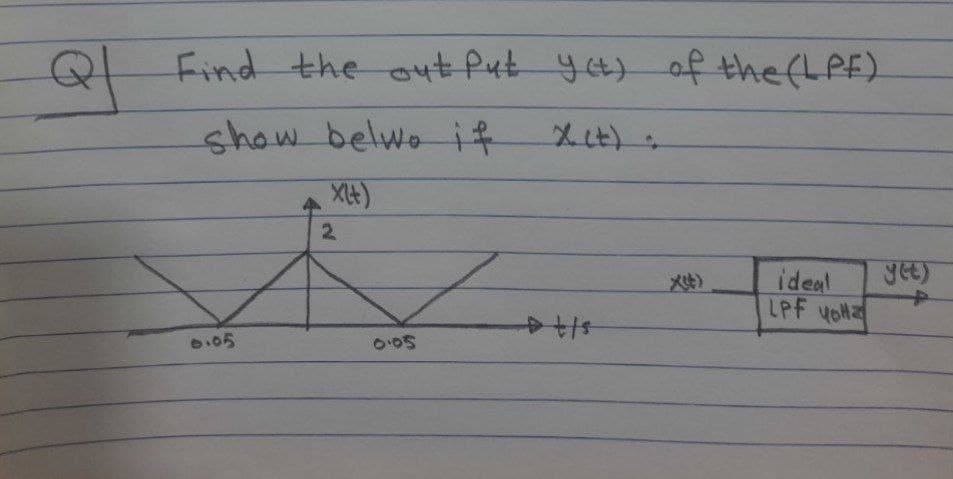 Q| Find the out Put y(t) of the (LPF)
show belwo if x(t) :
X(t)
2
0.05
0.05
t/s
x(t)
ideal
LPF 40Hz
y(t)